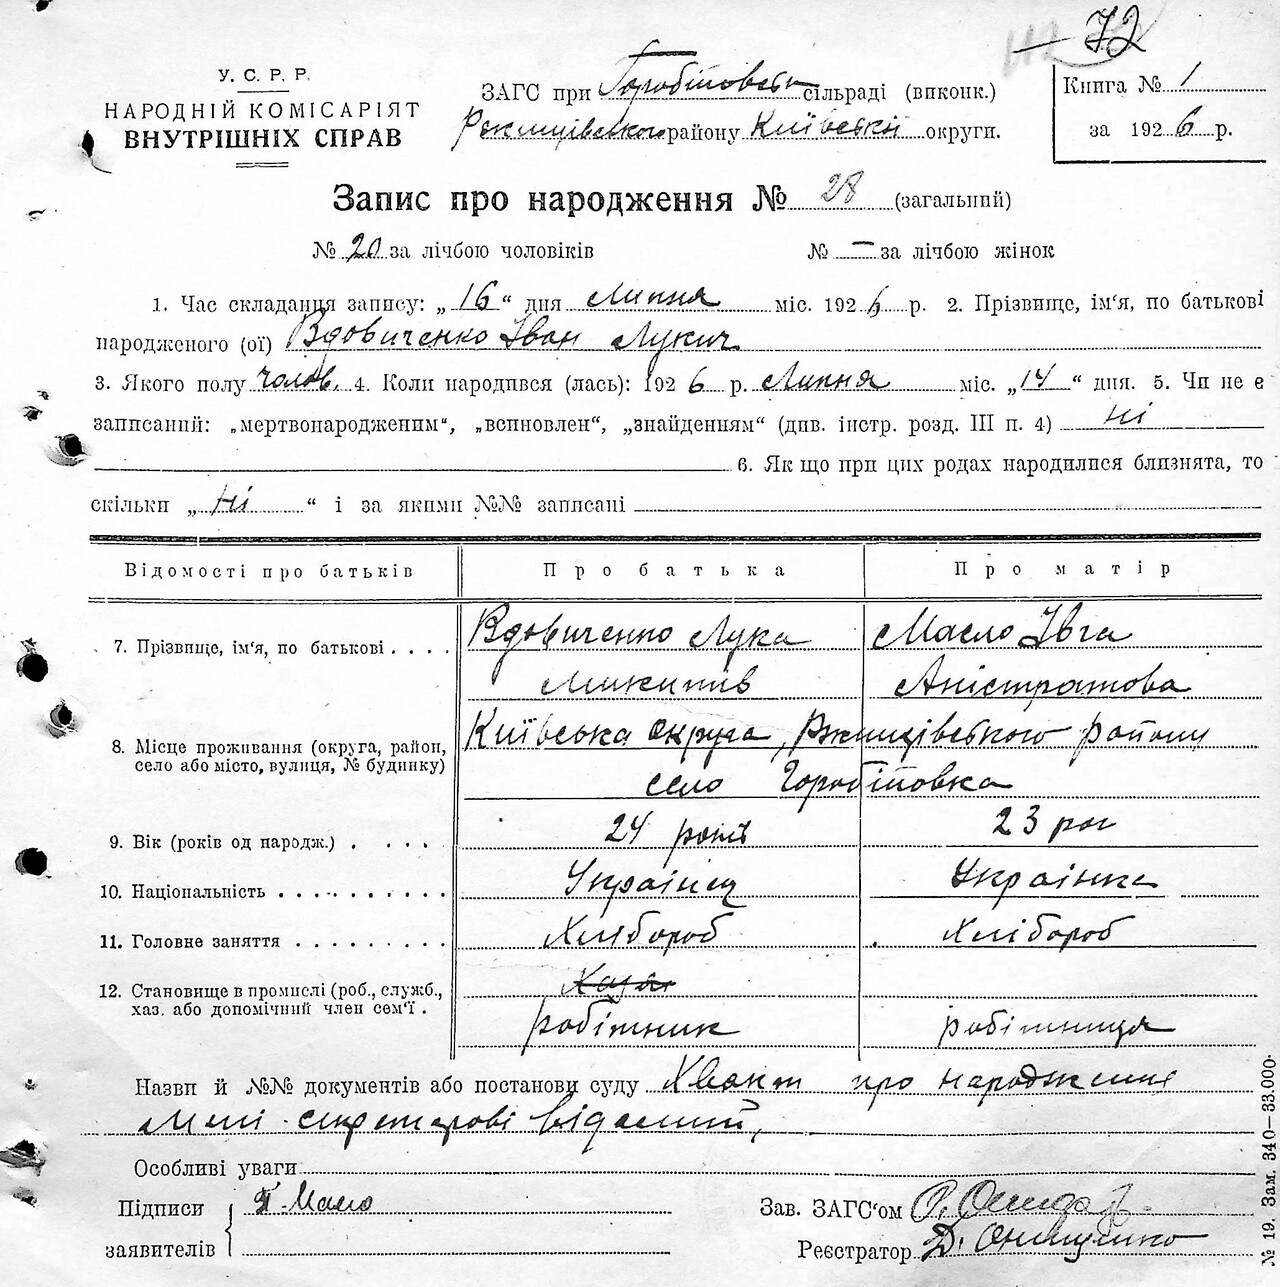 72
У. С. Р. Р.
НАРОДНІЙ КОМІСАРІЯТ
ВНУТРІШНІХ СПРАВ
ЗАГС при сільраді (виконк.)
району Київськ округи.
Книга № 1
за 1926 р.
Запис про народження № 28 (загальний)
№ 20 за лічбою чоловіків № — за лічбою жінок
1. Час складання запису: „ 16 “ дня Липня міс. 1926 р. 2. Прізвище, ім'я, по батькові
народженого (ої) Вдовиченко Іван Лукич
3. Якого полу чолов. 4. Коли народився (лась): 1926 р. Липня міс. „ 14 “ дня. 5. Чи не є
записаний: „мертвонародженим“, „всиновлен“, „знайденням“ (див. інстр. розд. III п. 4) Ні
6. Як що при цих родах народилися близнята, то
скільки „ Ні “ і за якими №№ записані
Відомості про батьків Про батька Про матір
7. Прізвище, ім'я, по батькові . . . . Вдовиченко Лука Масло Івга
Микитів Аністратова
8. Місце проживання (округа, район, село або місто, вулиця, № будинку) Київська округа, району
село
9. Вік (років од народж.) . . . . . 24 років 23 рок
10. Національність . . . . . . . . . Українец Українка
11. Головне заняття . . . . . . . . . Хлібороб Хлібороб
12. Становище в промислі (роб., служб., хаз. або допомічний член сем'ї .
робітник робітниця
Назви й №№ документів або постанови суду про народження
секретарові
Особливі уваги
Підписи
заявителів
Зав. ЗАГС'ом
Реєстратор Д. Онищенко
№ 19. Зам. 340—33.000.